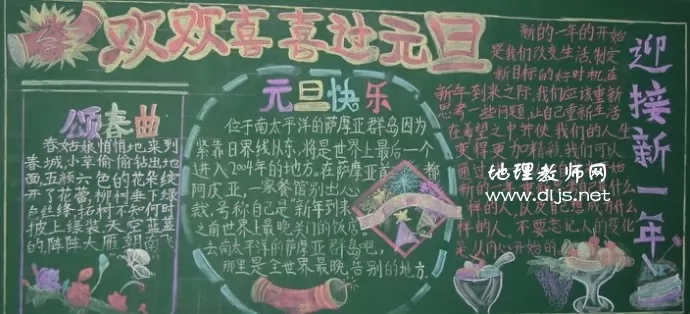 欢欢喜喜过元旦
颂春曲
春姑娘悄悄地来到
春城,小草偷偷钻出地
面,五颜六色的花朵纷纷
开了花蕾,柳树垂下绿
色丝绦,柘树不知何时
披上绿装,天空蓝蓝
的,阵阵大雁朝南飞
元旦快乐
位于南太平洋的萨摩亚群岛因为
紧靠日界线以东,将是世界上最后一个
进入2004年的地方。在萨摩亚首 都
阿庆亚,一家餐馆别出心
裁,号称自己是“新年到来
之前世界上最晚关门的饭店
去南太平洋的萨摩亚群岛吧,
那里是全世界最晚告别的地方.
新的一年的开始
是我们改变生活,制定
新目标的好时机,在
新年到来之际,我们应该重新
思考一些问题,让自己重新生活
在希望之中并使我们的人生
变得更加精彩,我们可以
通过
新的一年里
一样的人,以及自己想成为什么
样的人,不要忘记人们的变化
是从内心开始的
迎接新一年
地理教师网
www.dljs.net